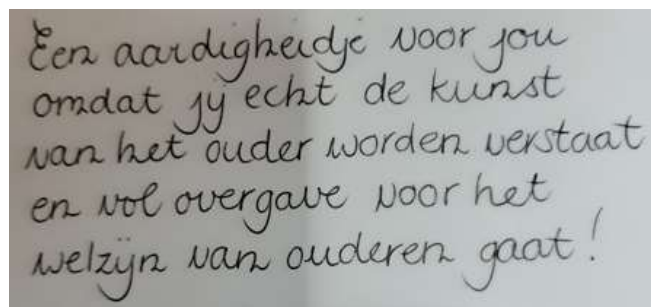 Een aardigheidje voor jou
omdat jij echt de kunst
van het ouder worden verstaat
en vol overgave voor het
welzijn van ouderen gaat!